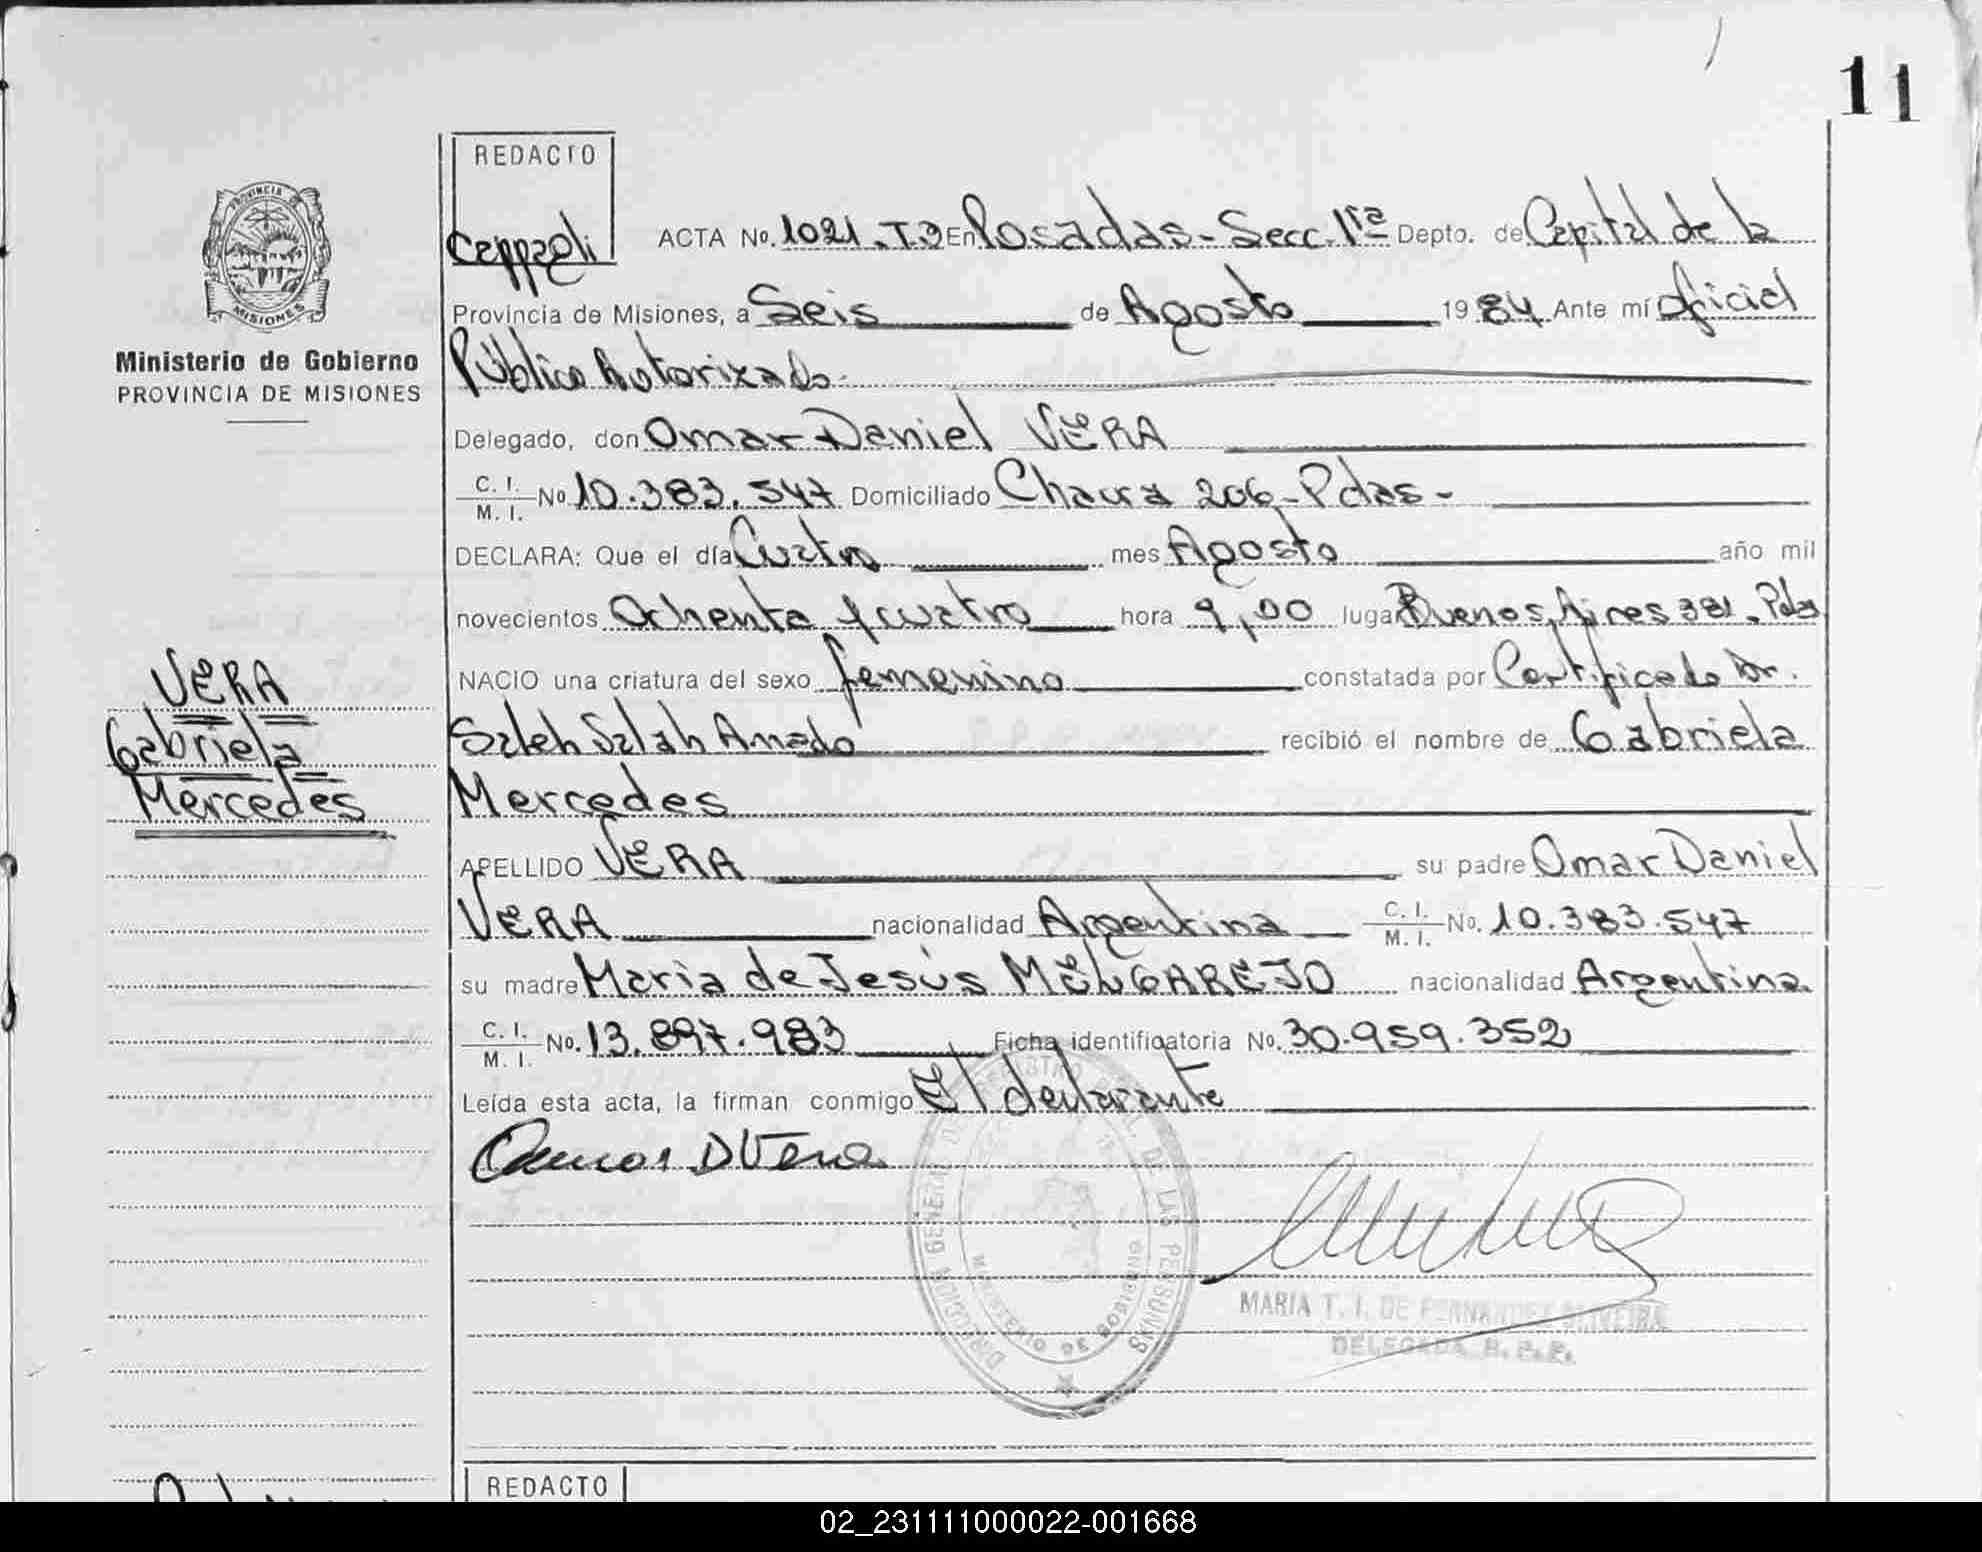 11
REDACTO
Ceppagli
ACTA No. 1021. T3 En Posadas - Secc. 1ra Depto. de Capital de la
Provincia de Misiones, a Seis de Agosto 1984 Ante mí Oficial
Público Autorizado
Delegado, don Omar Daniel VERA
C. I. M. I. No 10.383.547 Domiciliado Chacra 206 - Pdas -
DECLARA: Que el día Cuatro mes Agosto año mil
novecientos Ochenta y cuatro hora 9,00 lugar Buenos Aires 381. Pdas
NACIO una criatura del sexo femenino constatada por Certificado Dr.
Saleh Salah Amado recibió el nombre de Gabriela
Mercedes
APELLIDO VERA su padre Omar Daniel
VERA nacionalidad Argentina C. I. M. I. No. 10.383.547
su madre María de Jesús MELGAREJO nacionalidad Argentina
C. I. M. I. No. 13.897.983 Ficha identificatoria No. 30.959.352
Leída esta acta, la firman conmigo El declarante
DIRECCION GENERAL DE REGISTRO DE LAS PERSONAS
MARIA T. I. DE FERNANDEZ OLIVEIRA
DELEGADA R. P. P.
PROVINCIA
MISIONES
Ministerio de Gobierno
PROVINCIA DE MISIONES
VERA
Gabriela
Mercedes
REDACTO
02_231111000022-001668